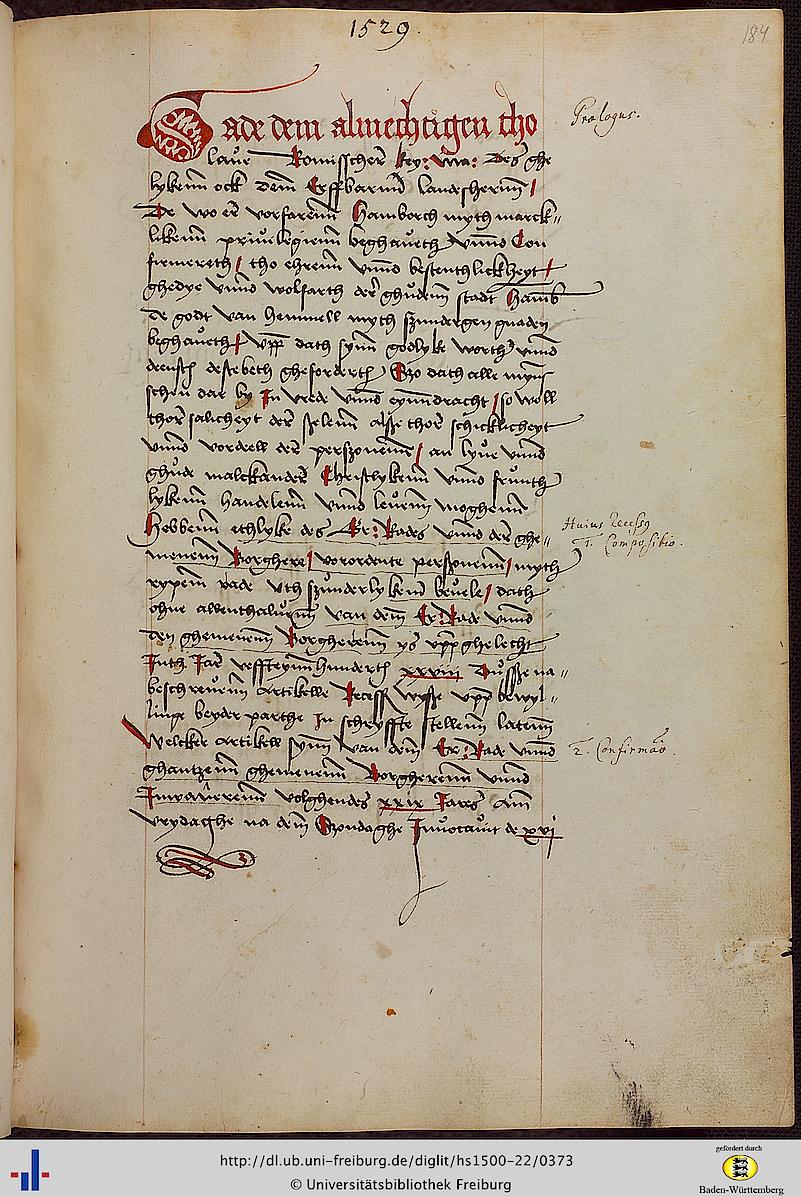 1529.
184
Gade dem almechtigen tho
Prologus.
laue Romisscher key: Ma: des ghe
lykenn ock denn Erffbarnn landsherrnn /
De wo er vorfarenn Hamborch myth marck=
likenn priuilegienn beghaueth vnnd Con
firmereth / tho ehrenn vnnd bestenthlickheyt /
ghedye vnnd wolfarth der ghudenn stadt Hamb
de godt van hemmell myth szundergen gnaden
beghaueth / vpp dath synn godlyke worth vnnd
deensth destebeth gheforderth Szo dath alle mynsch
schen dar by In vrede vnnd eynndracht / so woll
thor salicheyt der szelenn alsze thor schicklicheyt
vnnd vordell der perszonenn / an lyue vnnd
ghude malckander Christlykenn vnnd frunth
lykenn handelenn vnnd leuenn moghenn
Hebbenn ethlyke des Er: Rades vnnd der ghe=
Huius Recess9
1. Compositio.
menenn Borghere / vorordente perszonenn / myth
rypem rade vth szunderlykem beuele / dath
ohne allenthaluenn van dem Er: Rade vnnd
den ghemenenn Borgherenn ys vpp ghelecht
Inth Jar veffteynnhunderth xxviii Dusse na=
beschreuenn Artikelle Recess wysze vpp bewyl=
linge beyder parthe In schryffte stellenn latenn
Welcker Artikell synn van dem Er: Rade vnnd
2. Confirmao.
ghantzenn ghemenenn Borgherenn vnnd
Inwanerenn volghendes xxix Jares Am
vrydaghe na dem Szondaghe Inuocauit de xvi
http://dl.ub.uni-freiburg.de/diglit/hs1500-22/0373
© Universitätsbibliothek Freiburg
gefördert durch
Baden-Württemberg